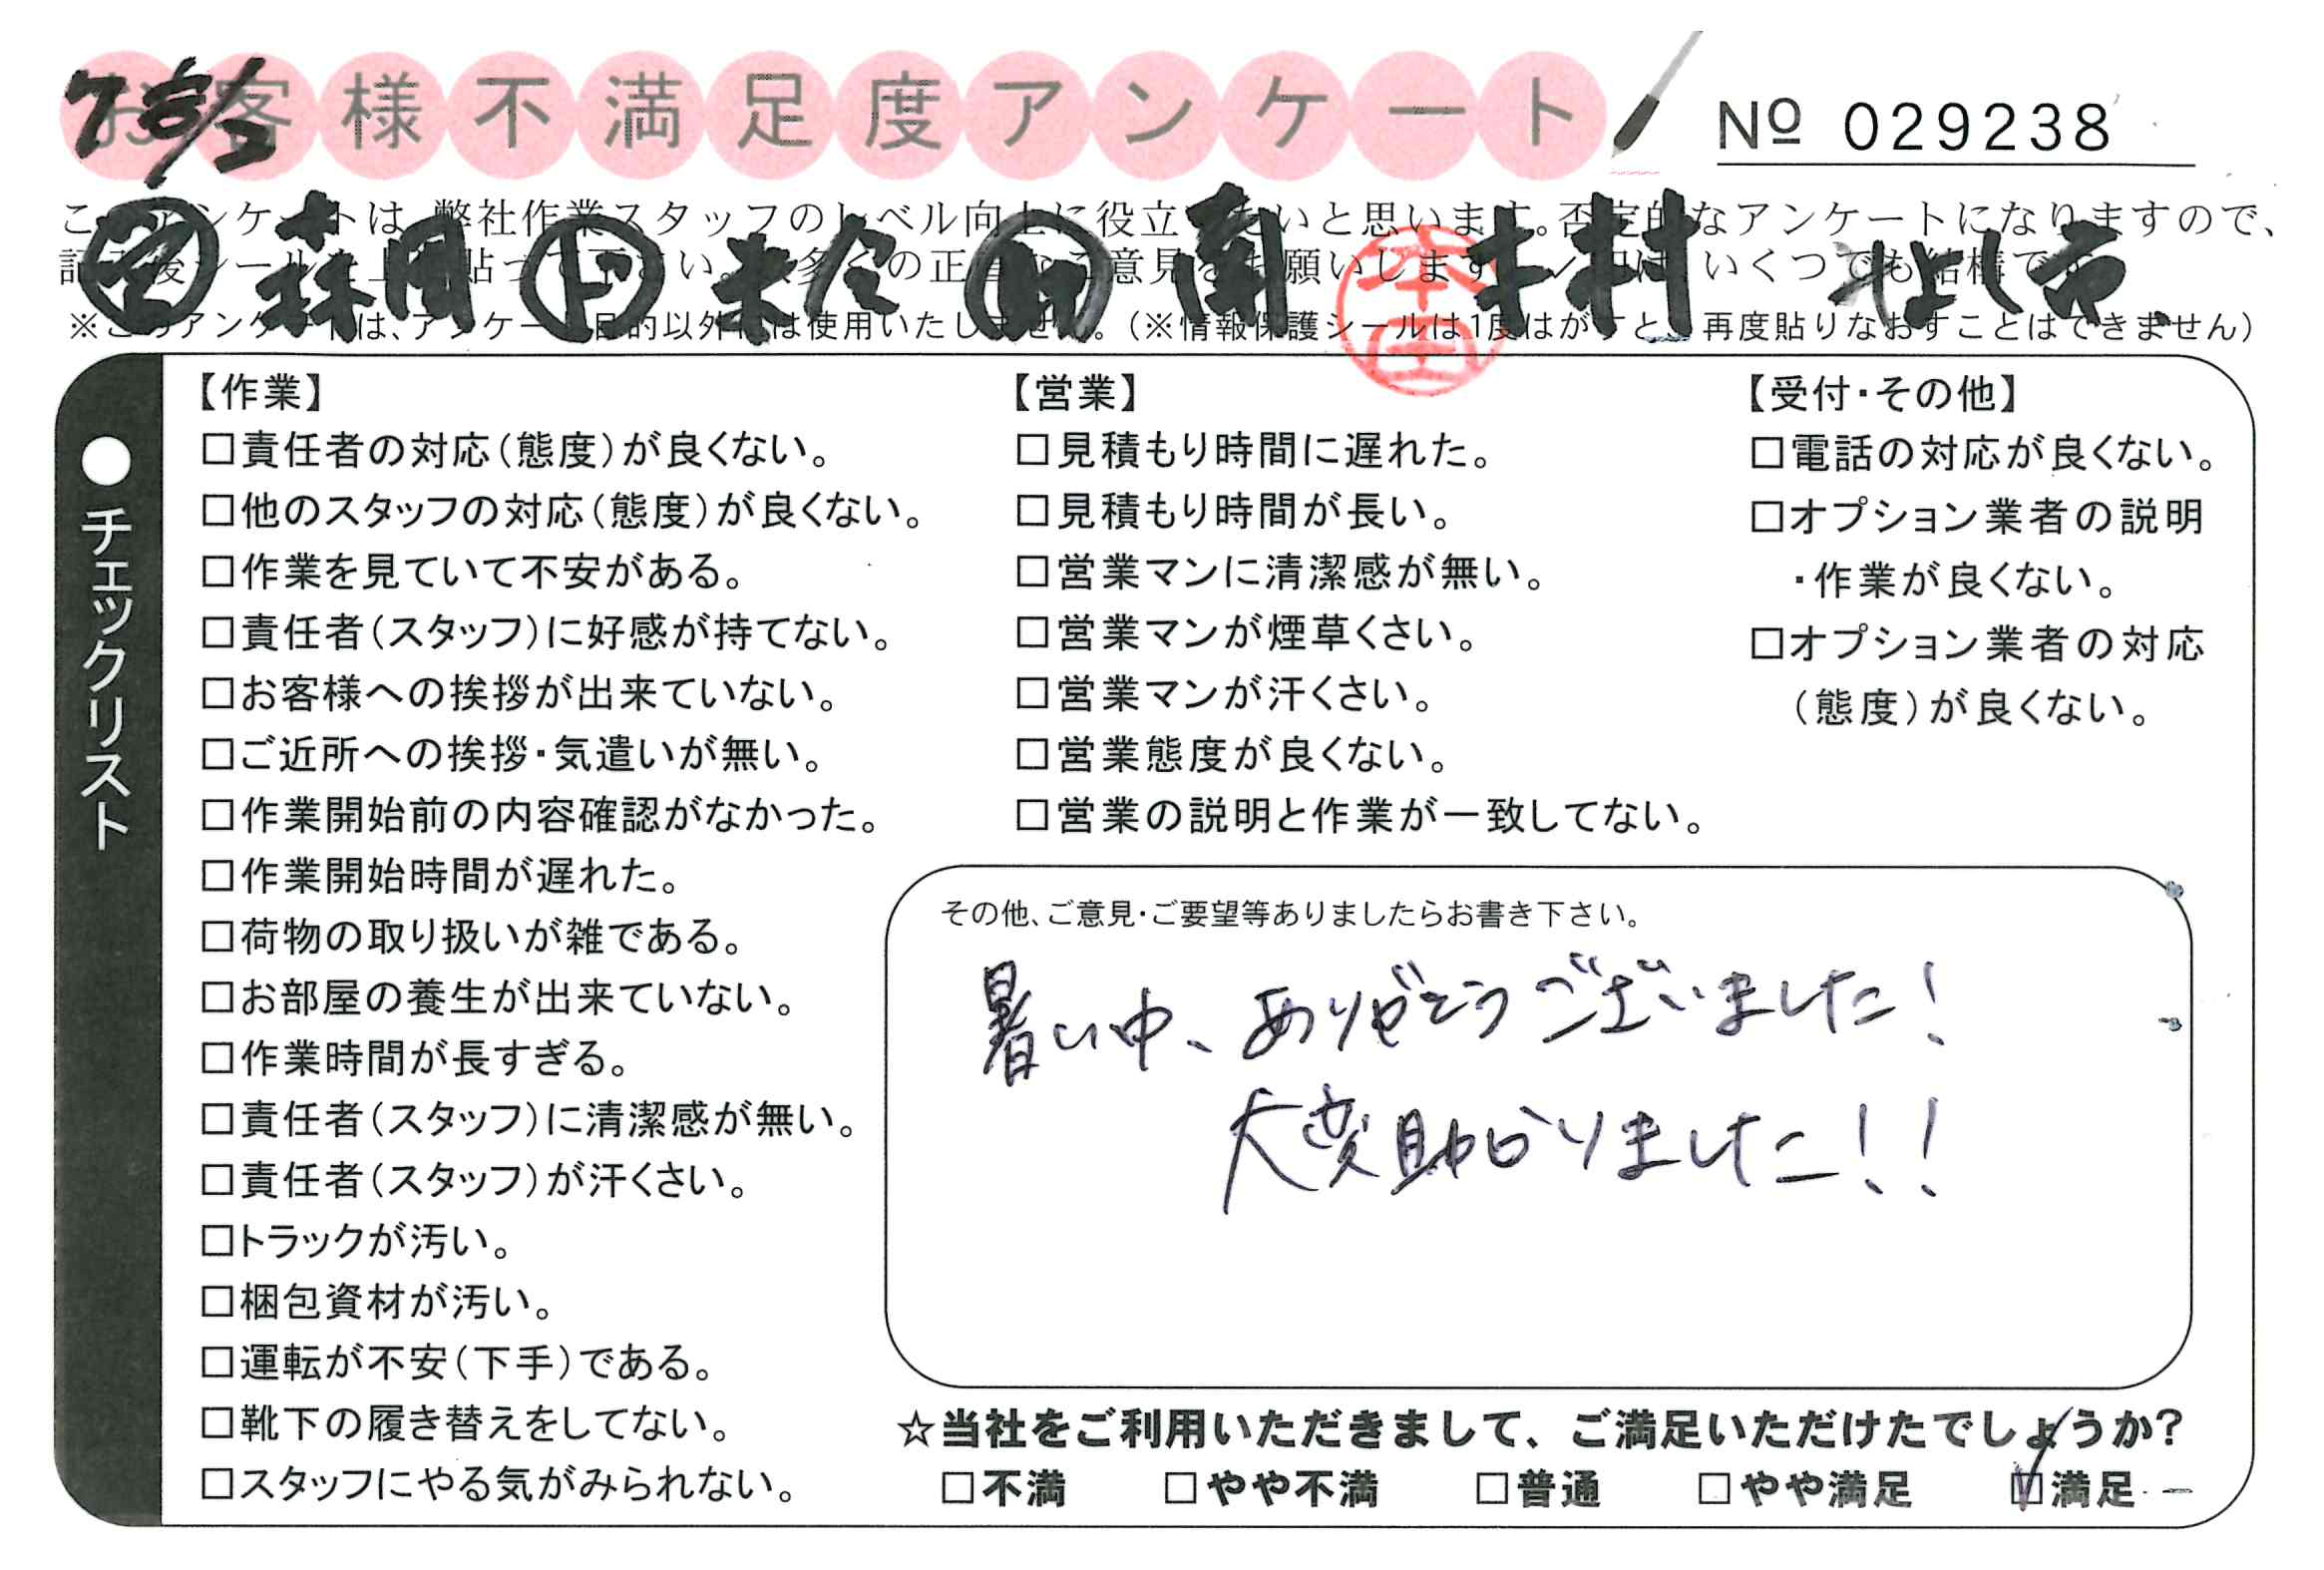 お客様不満足度アンケート
№ 029238
このアンケートは、弊社作業スタッフのレベル向上に役立てたいと思います。否定的なアンケートになりますので、
※このアンケートは、アンケート目的以外には使用いたしません。（※情報保護シールは1度はがすと、再度貼りなおすことはできません）
森岡 南 木村
本田
●チェックリスト
【作業】
□責任者の対応（態度）が良くない。
□他のスタッフの対応（態度）が良くない。
□作業を見ていて不安がある。
□責任者（スタッフ）に好感が持てない。
□お客様への挨拶が出来ていない。
□ご近所への挨拶・気遣いが無い。
□作業開始前の内容確認がなかった。
□作業開始時間が遅れた。
□荷物の取り扱いが雑である。
□お部屋の養生が出来ていない。
□作業時間が長すぎる。
□責任者（スタッフ）に清潔感が無い。
□責任者（スタッフ）が汗くさい。
□トラックが汚い。
□梱包資材が汚い。
□運転が不安（下手）である。
□靴下の履き替えをしてない。
□スタッフにやる気がみられない。
【営業】
□見積もり時間に遅れた。
□見積もり時間が長い。
□営業マンに清潔感が無い。
□営業マンが煙草くさい。
□営業マンが汗くさい。
□営業態度が良くない。
□営業の説明と作業が一致してない。
【受付・その他】
□電話の対応が良くない。
□オプション業者の説明
・作業が良くない。
□オプション業者の対応
（態度）が良くない。
その他、ご意見・ご要望等ありましたらお書き下さい。
暑い中、ありがとうございました！
大変助かりました！！
☆当社をご利用いただきまして、ご満足いただけたでしょうか？
□不満 □やや不満 □普通 □やや満足 ☑満足